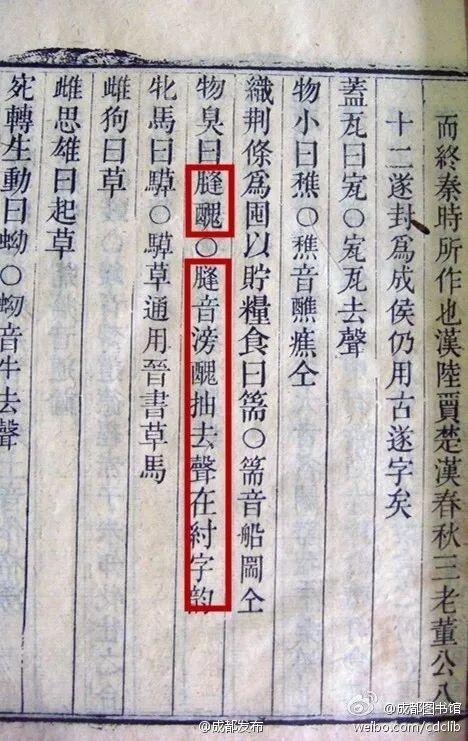 而終秦時所作也漢陸賈楚漢春秋三老董公八
十二遂封為成侯仍用古遂字矣
蓋瓦曰㝮○㝮瓦去聲
物小曰穛○穛音醮癄仝
織荆條為囤以貯糧食曰篅○篅音船圌仝
物臭曰膖醜○膖音滂醜抽去聲在紂字韵
牝馬曰騲○騲草通用晉書草馬
雌狗曰草
雌思雄曰起草
宛轉生動曰蚴○蚴音牛去聲
@成都图书馆
@成都发布
weibo.com/cdclib